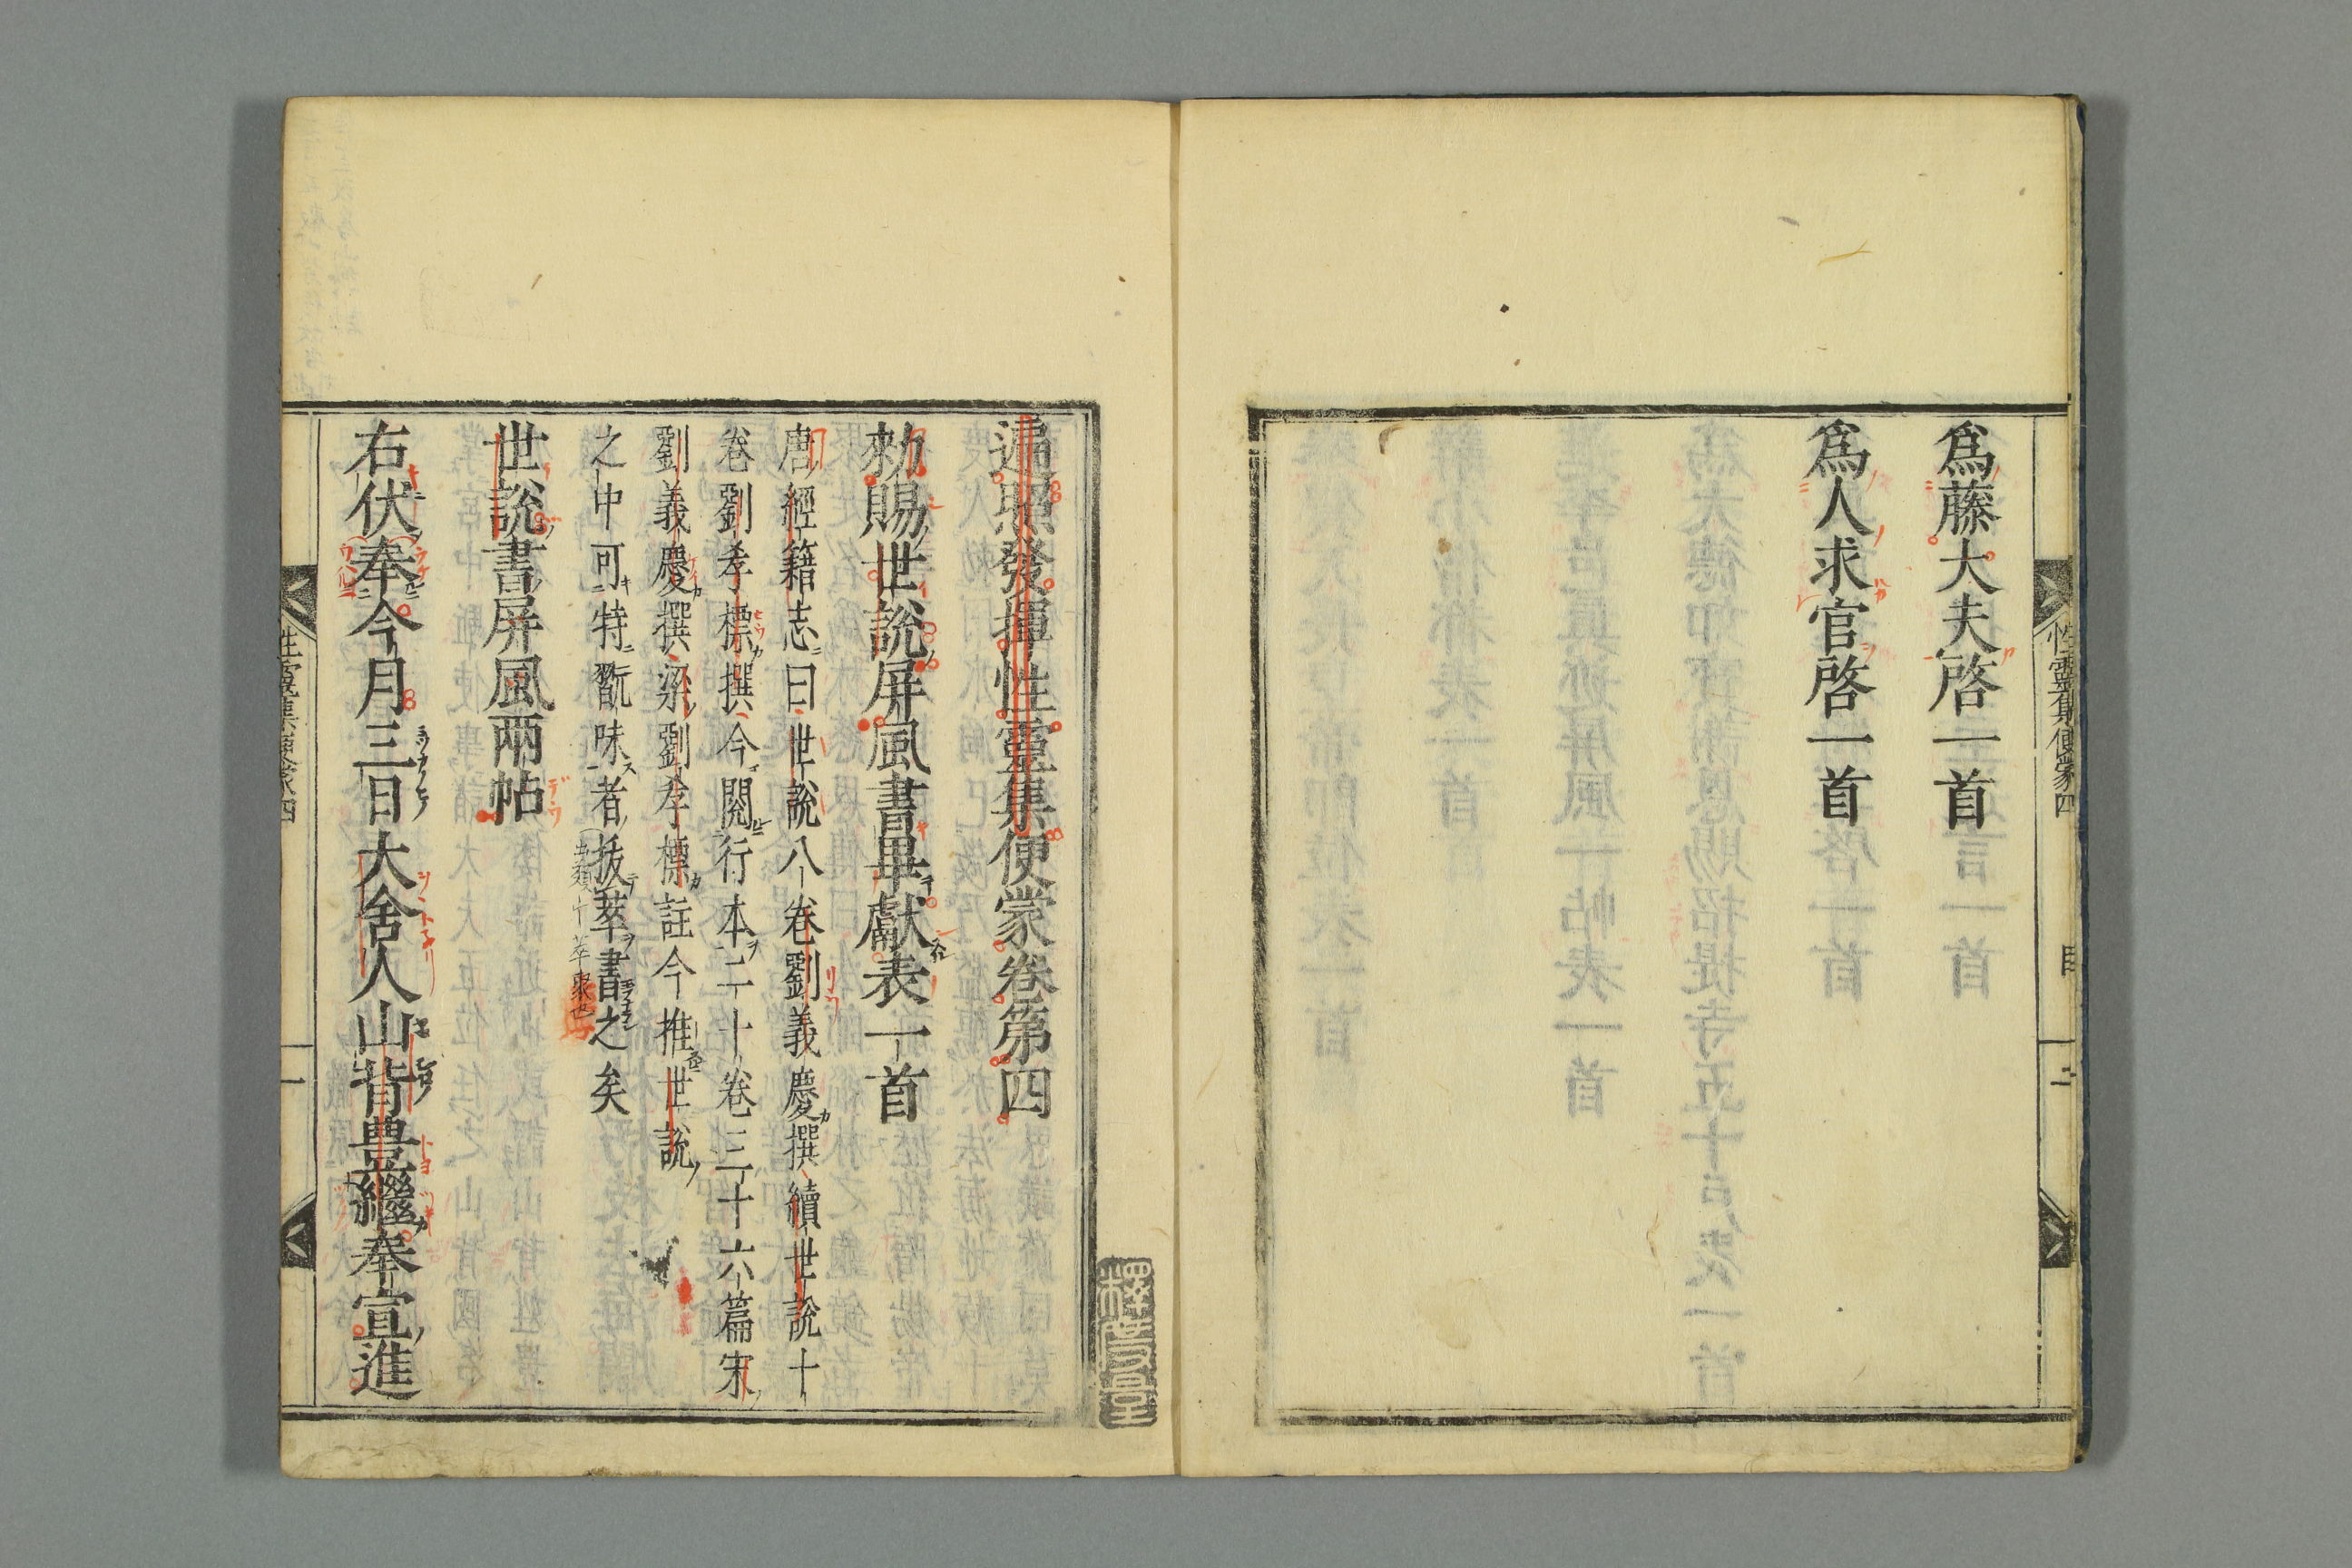 爲藤大夫啓一首
爲人求官啓一首
性靈集便蒙四
二
遍照發揮性靈集便蒙卷第四
勑賜世說屏風書畢獻表一首
唐經籍志曰世說八卷劉義慶撰續世說十
卷劉孝標撰今閱行本二十卷三十六篇宋
劉義慶撰梁劉孝標註今推世說
之中可特翫味者拔萃書之矣
世說書屏風兩帖
右伏奉今月三日大舍人山背豊繼奉宣進
性靈集便蒙四
一